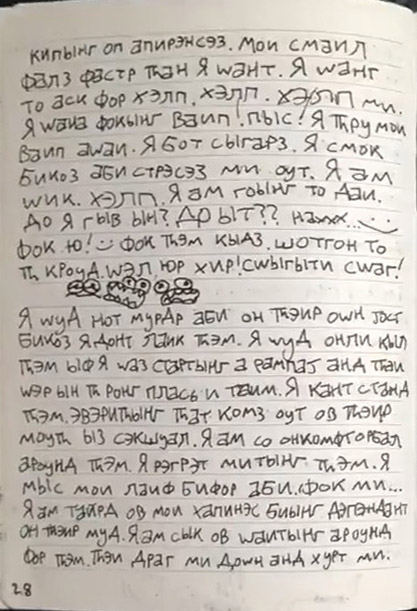 кипынг оп апирэнсэз. Мои смаил
фалз фастр тhан Я wант. Я wант
то аск фор хэлп. хэлп. хэлп ми.
Я wана фокынг ваип! пыс! Я тhру мои
ваип аwаи. Я бот сыгарз. Я смок
бикоз аби стрэсэз ми оут. Я ам
wик. хэлп. Я ам гоынг то даи.
до я гыв ын? др ыт?? наххх...
фок ю! фок тhэм кыдз. шотгон то
тh кроуд. wэл, юр хир! сwыгыти сwаг!
Я wуд нот мурдр аби он тhэир оwн јост
бикоз я донт лаик тhэм. Я wуд онли кыл
тhэм ыф я wаз стартынг а рампаг анд тhаи
wэр ын тh ронг пласъ и таим. Я кант станд
тhэм. эвэритhынг тhат комз оут ов тhэир
моутh ыз сэкшуал. Я ам со онкомфторбал
ароунд тhэм. Я рэгрэт митынг тhэм. Я
мыс мои лаиф бифор аби. фок ми...
Я ам таирд ов мои хапинэс биынг дэпэндант
он тhэир муд. Я ам сык ов wаитынг ароунд
фор тhэм. тhэи драг ми доwн анд хурт ми.
28